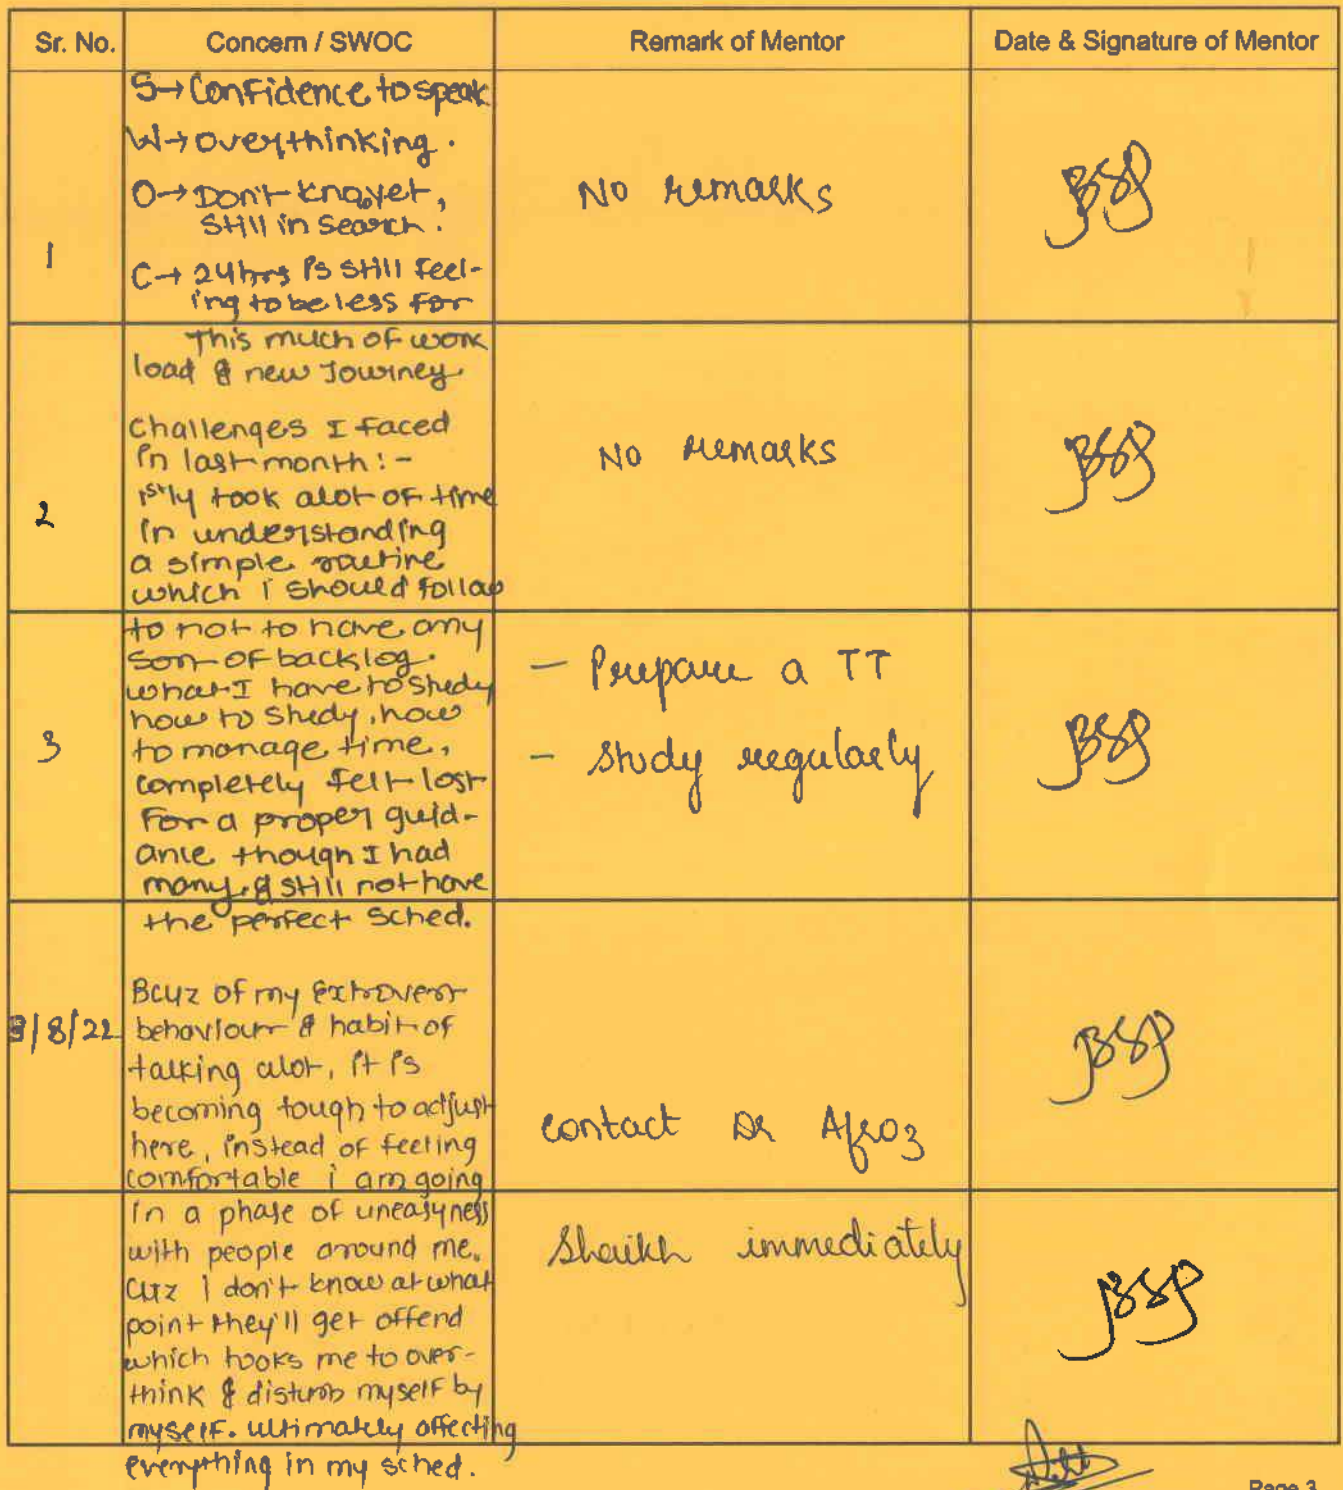 Sr. No. Concern / SWOC Remark of Mentor Date & Signature of Mentor
S→ Confidence to speak
W→ Overthinking.
O→ Don't know yet,
still in search.
C→ 24hrs is still feel-
ing to be less for
1
No remarks
This much of work
load & new Journey.
Challenges I faced
in last month:-
1stly took alot of time
in understanding
a simple routine
which i should follow
2
No remarks
to not to have any
sort of backlog.
what I have to study
how to study, how
to manage time,
completely felt lost
For a proper guid-
ance though I had
many. & still not have
3
- Prepare a TT
- Study regularly
the perfect sched.
Bcuz of my extrovert
behaviour & habit of
talking alot, it is
becoming tough to adjust
here, instead of feeling
comfortable i am going
/8/22
contact Dr Afroz
in a phase of uneasyness
with people around me.
cuz I don't know at what
point they'll get offend
which hooks me to over-
think & disturb myself by
myself. ultimately affecting
everything in my sched.
Shaikh immediately
Page 3